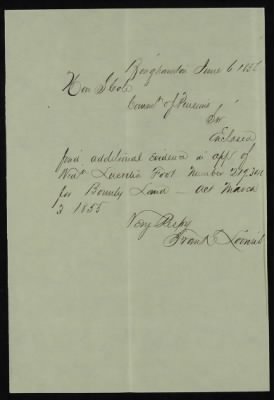 Binghamton June 6 1856
Hon J Cole
Comm of Pensions
Sir
Enclosed
find additional evidence in app of
Wid Lucretia Foot Number 219,
for Bounty Land – act March
3 1855
Very Respy
Frank Loomis